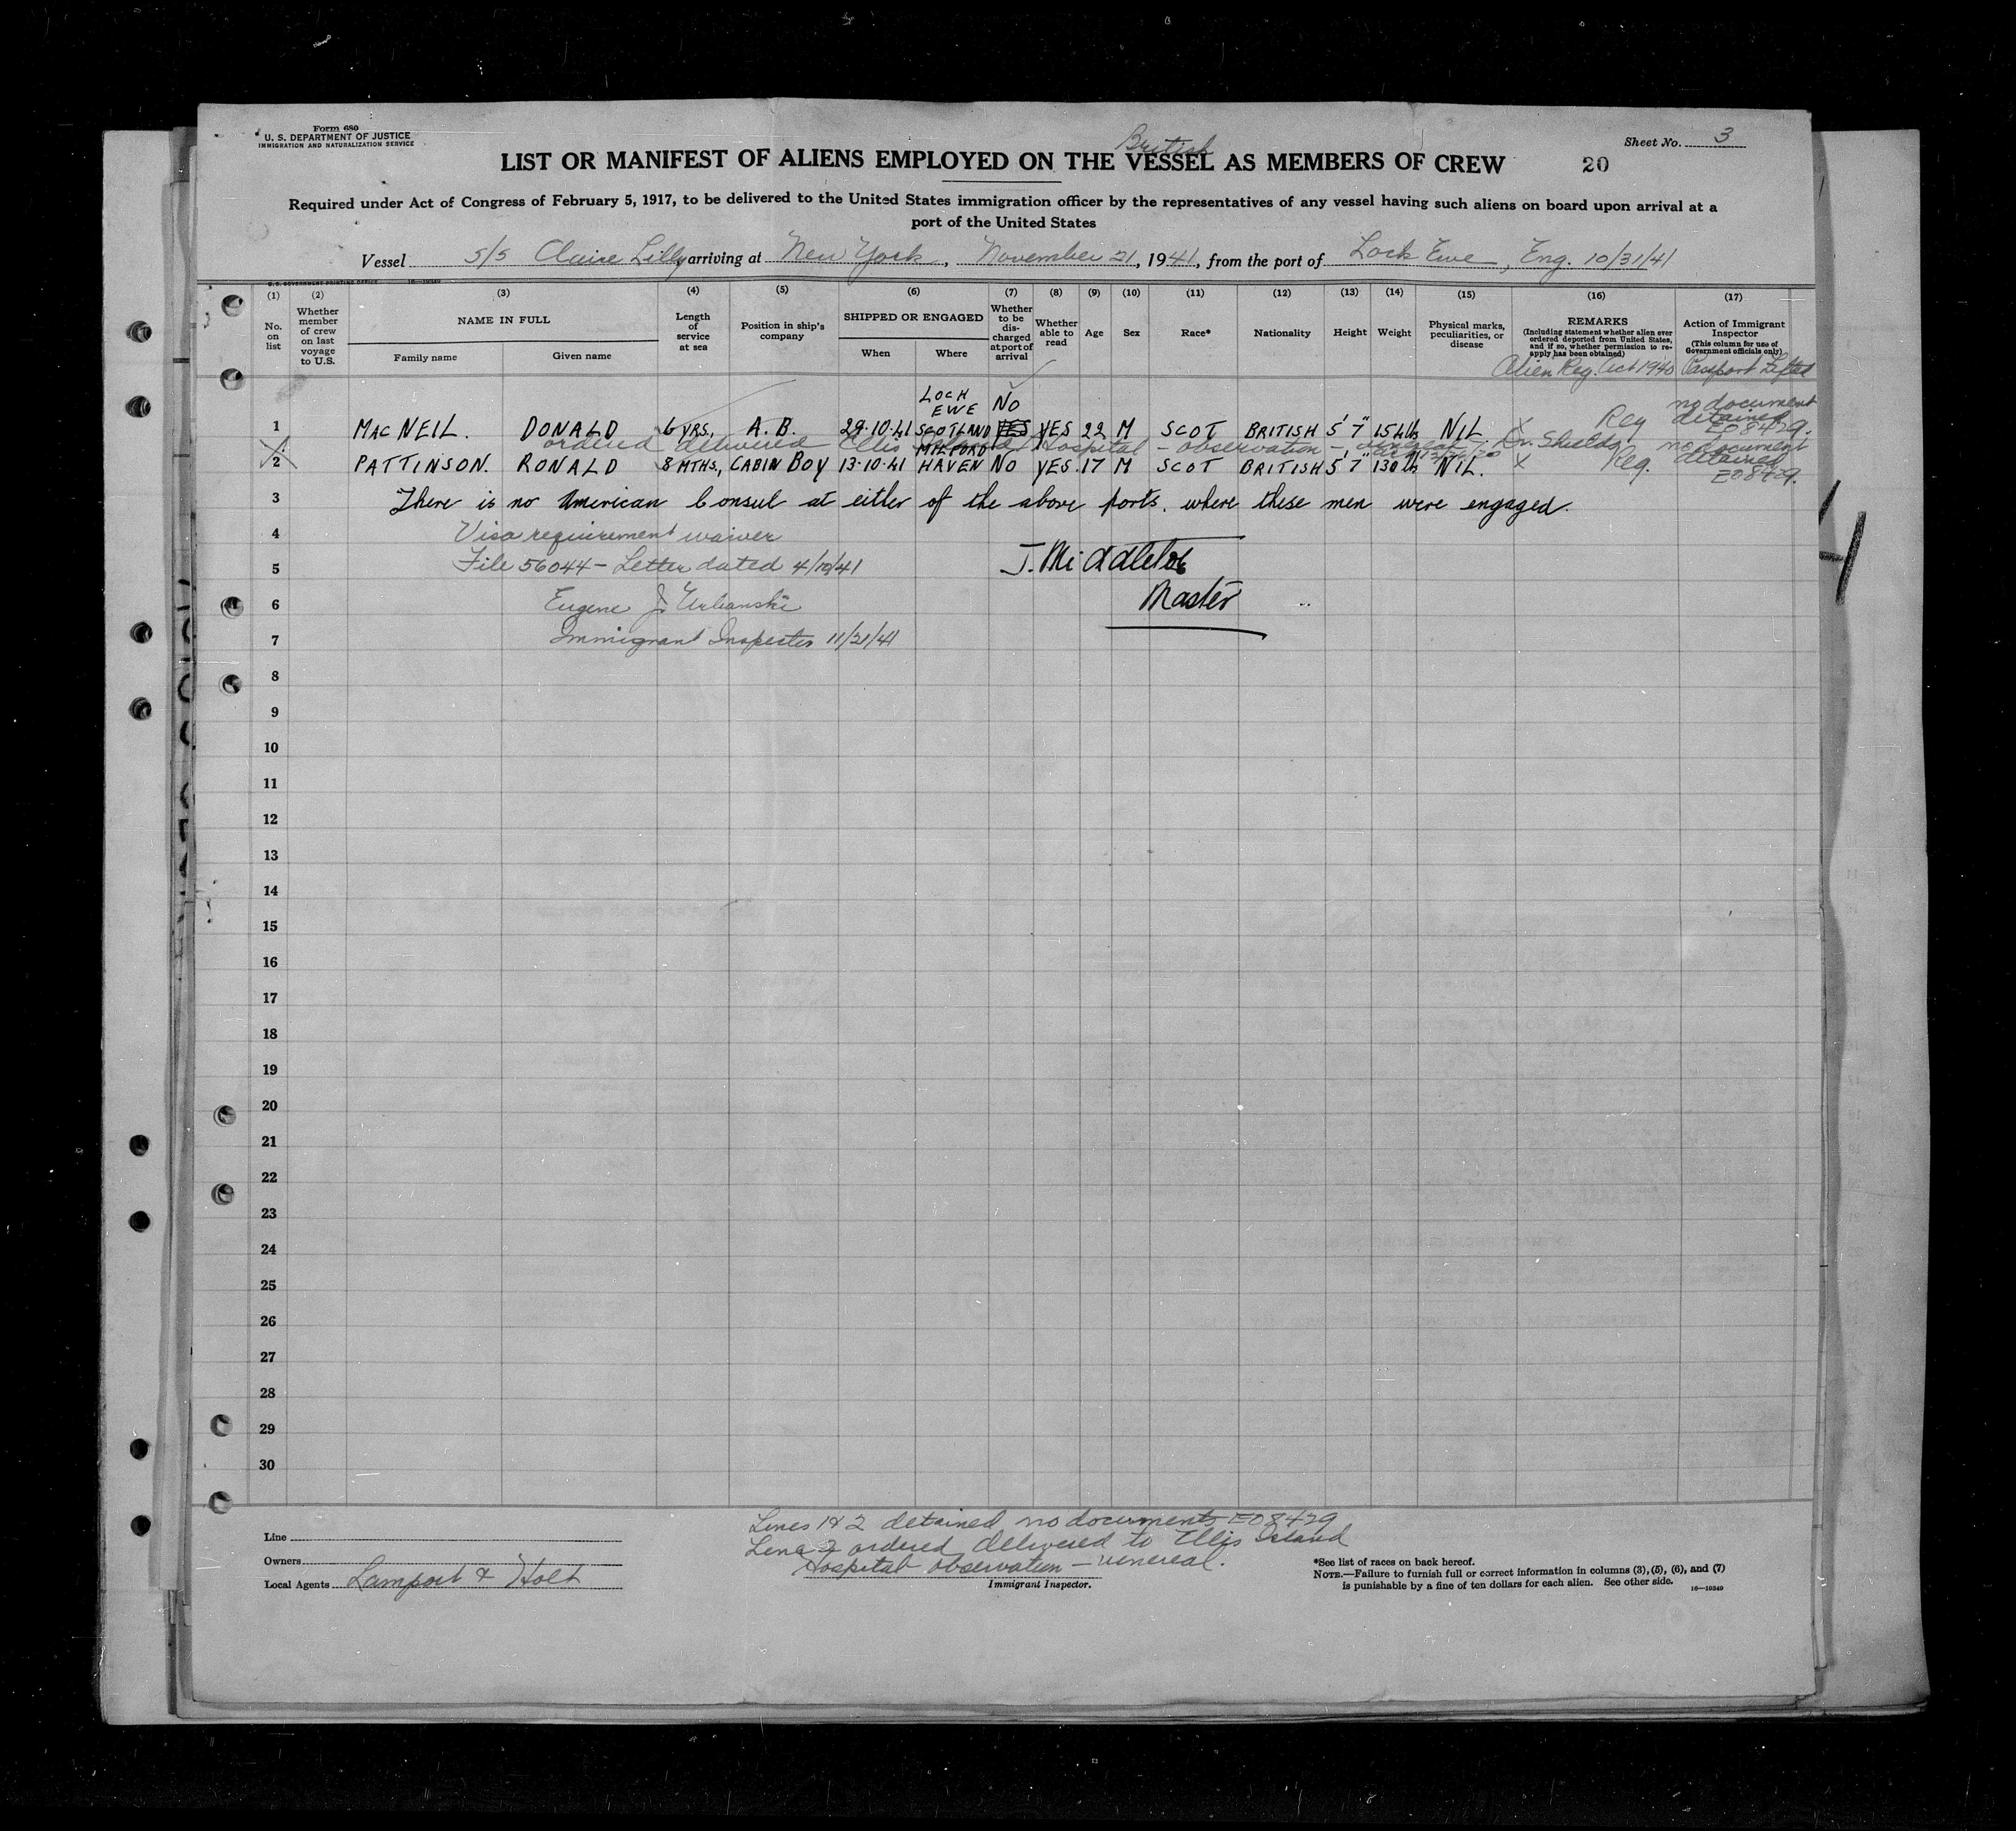 Form 680
U. S. DEPARTMENT OF JUSTICE
IMMIGRATION AND NATURALIZATION SERVICE
Sheet No. 3
British
LIST OR MANIFEST OF ALIENS EMPLOYED ON THE VESSEL AS MEMBERS OF CREW 20
Required under Act of Congress of February 5, 1917, to be delivered to the United States immigration officer by the representatives of any vessel having such aliens on board upon arrival at a
port of the United States
Vessel S/S Claire Lilly, arriving at New York, November 21, 1941, from the port of Lock Ewe, Eng. 10/31/41
U.S. GOVERNMENT PRINTING OFFICE 16—19349
(1) (2) (3) (4) (5) (6) (7) (8) (9) (10) (11) (12) (13) (14) (15) (16) (17)
No. on list
Whether member of crew on last voyage to U.S.
NAME IN FULL
Family name Given name
Length of service at sea
Position in ship's company
SHIPPED OR ENGAGED
When Where
Whether to be discharged at port of arrival
Whether able to read
Age
Sex
Race*
Nationality
Height
Weight
Physical marks, peculiarities, or disease
REMARKS
(Including statement whether alien ever ordered deported from United States, and if so, whether permission to reapply has been obtained)
Action of Immigrant Inspector
(This column for use of Government officials only)
Alien Reg. Act 1940 Passport Lifted
LOCH EWE NO no document
1 MAC NEIL. DONALD 6 YRS., A.B. 29·10·41 SCOTLAND YES YES 22 M SCOT BRITISH 5' 7" 154 lb NIL X Reg detained E08429.
ordered delivered Ellis Island Hospital - observation - Dr. Shields no document
2 PATTINSON. RONALD 8 MTHS., CABIN BOY 13·10·41 MILFORD HAVEN NO YES 17 M SCOT BRITISH 5' 7" 130 lb NIL. X Reg. detained E08429.
3 There is no American Consul at either of the above ports. where these men were engaged.
4 Visa requirement waiver
5 File 56044 - Letter dated 4/10/41 J. Middleton
6 Eugene J Urbanski Master
7 Immigrant Inspector 11/21/41
8
9
10
11
12
13
14
15
16
17
18
19
20
21
22
23
24
25
26
27
28
29
30
Lines 1 & 2 detained no documents E08429
Line 2 ordered delivered to Ellis Island
Hospital observation - venereal.
Immigrant Inspector.
Line
Owners
Local Agents Lamport & Holt
*See list of races on back hereof.
NOTE.—Failure to furnish full or correct information in columns (3), (5), (6), and (7)
is punishable by a fine of ten dollars for each alien. See other side. 16—19349